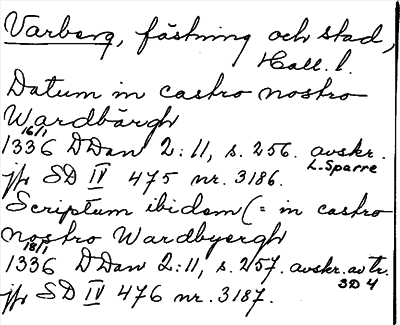 Varberg, fästning och stad,
Hall. l.
Datum in castro nostro
Wardbärgh
16/1
1336 DDan 2:11, s. 256. avskr.
L. Sparre
jfr SD IV 475 nr. 3186.
Scriptum ibidem (= in castro
nostro Wardbyergh
18/1
1336 DDan 2:11, s. 257. avskr. av tr.
SD 4
jfr SD IV 476 nr. 3187.